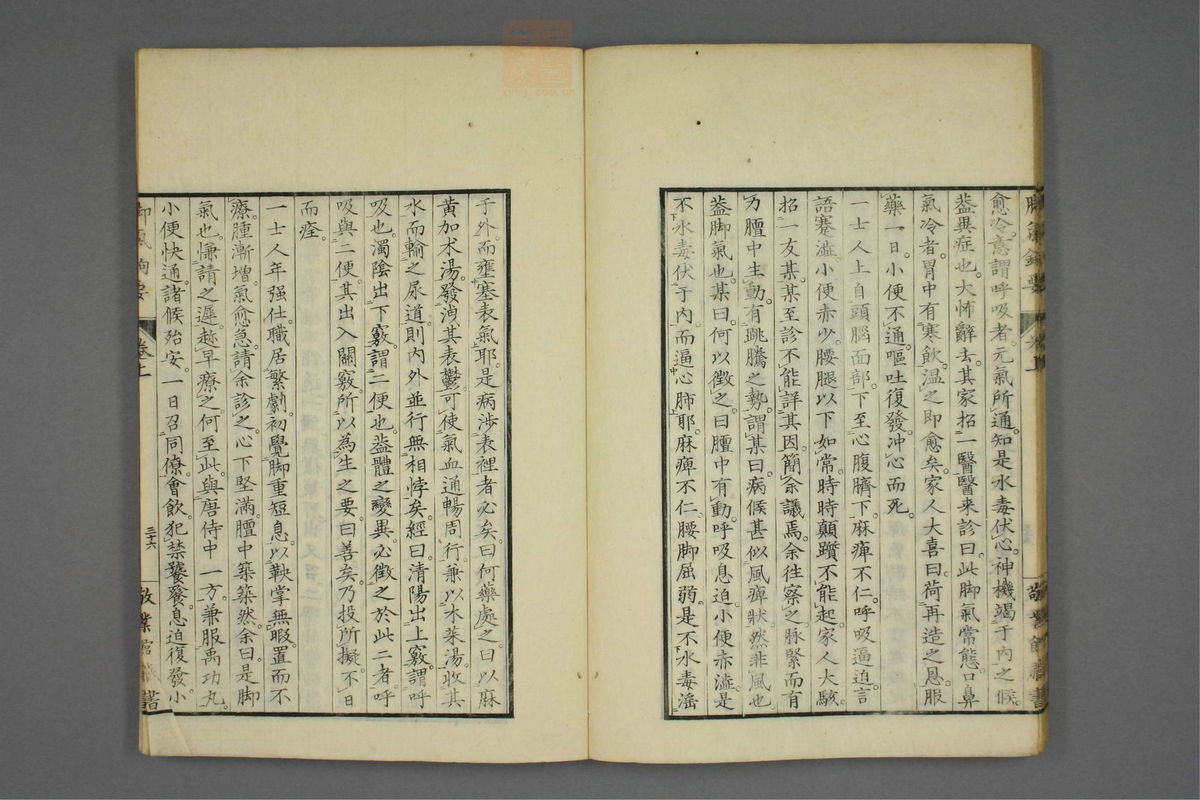 愈冷意謂呼吸者元氣所通知是水毒伏心神機竭于内之候
蓋異症也大怖辭去其家招一醫醫来診曰此脚氣常態口鼻
氣冷者胃中有寒飲温之即愈矣家人大喜曰荷再造之恩服
藥一日小便不通嘔吐復發冲心而死
一士人上自頭腦面部下至心腹臍下麻痺不仁呼吸逼迫言
語蹇澁小便赤少腰腿以下如常時時顛躓不能起家人大駭
招一友某某至診不能詳其因簡余議焉余往察之脉緊而有
力膻中生動有跳騰之勢謂某曰病候甚似風痺狀然非風也
蓋脚氣也某曰何以徵之曰膻中有動呼吸息迫小便赤澁是
不水毒伏于内而逼心肺耶麻痺不仁腰脚屈弱是不水毒滛
于外而壅塞表氣耶是病涉表裡者必矣曰何藥處之曰以麻
黄加朮湯發洩其表鬱可使氣血通暢周行兼以木茱湯收其
水而輸之尿道則内外並行無相悖矣經曰清陽出上竅謂呼
吸也濁陰出下竅謂二便也蓋體之變異必徵之於此二者呼
吸與二便其出入關竅所以為生之要曰善矣乃投所擬不日
而痊
一士人年强仕職居繁劇初覺脚重短息以鞅掌無暇置而不
療腫漸增氣愈急請余診之心下堅滿膻中築築然余曰是脚
氣也慊請之遲趂早療之何至此與唐侍中一方兼服禹功丸
小便快通諸候殆安一日召同僚會飲犯禁饕餮息迫復發小
脚氣鉤要
卷上
三十六
敬業館藏書